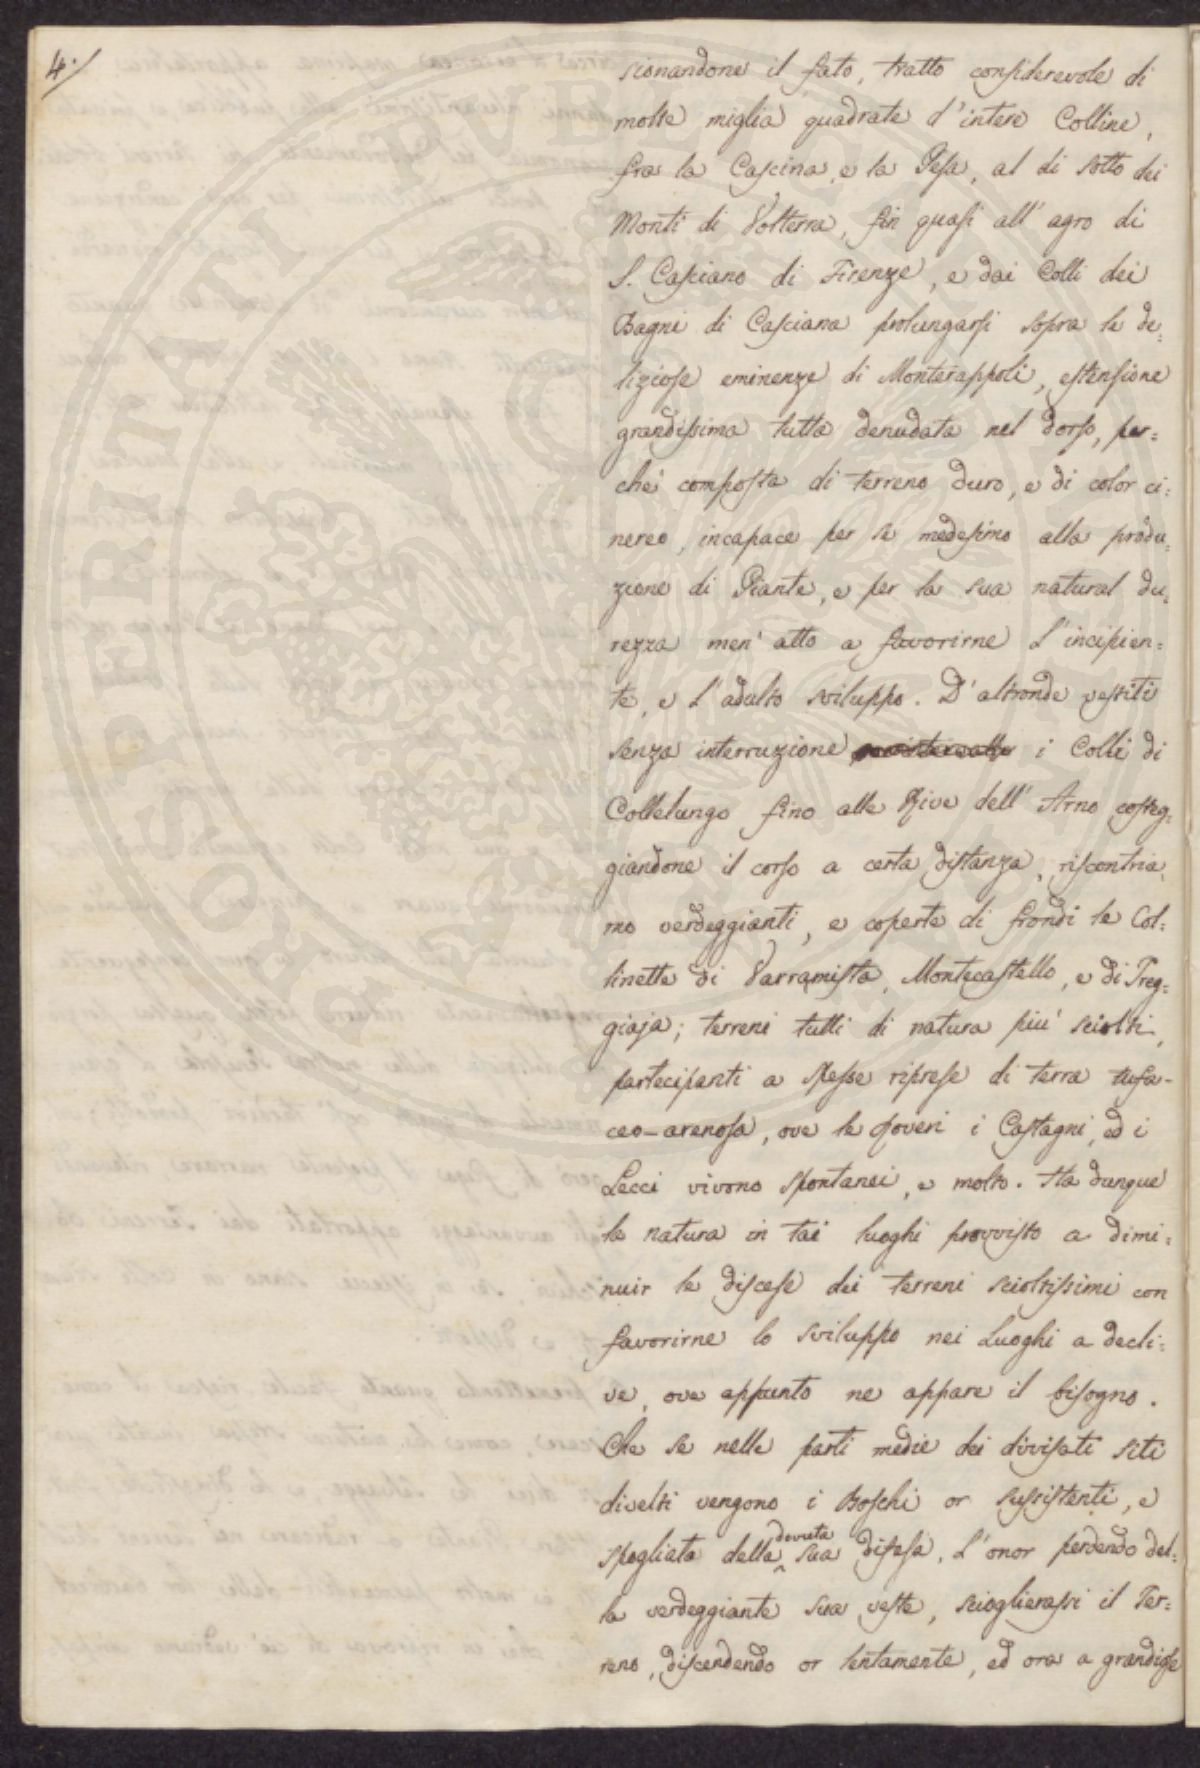 4./
sionandone il fato, tratto considerevole di
molte miglia quadrate d'intere Colline,
fra la Cascina, e la Pesa, al di sotto dei
Monti di Volterra, fin quasi all' agro di
S. Casciano di Firenze, e dai Colli dei
Bagni di Casciana prolungarsi sopra le de=
liziose eminenze di Monterappoli, estensione
grandissima tutta denudata nel dorso, per=
chè composta di terreno duro, e di color ci=
nereo, incapace per se medesimo alla produ=
zione di Piante, e per la sua natural du=
rezza men' atto a favorirne l'incipien=
te, e l'adulto sviluppo. D'altronde vestiti
senza interruzione i Colli di
Collelungo fino alle Rive dell' Arno costeg=
giandone il corso a certa distanza, riscontria=
mo verdeggianti, e coperte di frondi le Col=
linette di Varramista, Montecastello, e di Treg=
giaja; terreni tutti di natura più sciolti,
partecipanti a spesse riprese di terra tufa-
ceo-arenosa, ove le Roveri i Castagni, ed i
Lecci vivono spontanei, e molto. Ha dunque
la natura in tai luoghi provvisto a dimi=
nuir le discese dei terreni scioltissimi con
favorirne lo sviluppo nei Luoghi a decli=
ve, ove appunto ne appare il bisogno.
Che se nelle parti medie dei divisati siti
divelti vengono i Boschi or sussistenti, e
spogliata della dovuta sua difesa, l'onor perdendo del=
la verdeggiante sua veste, scioglierassi il Ter=
reno, discendendo or lentamente, ed ora a grandiose
PROSPERITATI PUBLICAE